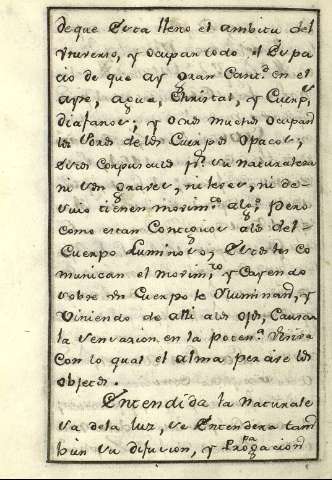 deque Esta lleno el ambitu del
Vniverso, y ocupan todo el Espa
cio de que ay gran Cant.d en el
ayre, agua, Christal, y Cuerp.s
diafanos; y otros muchos ocupan
los Poros de los Cuerpos Opacos,
Estos Corpusculos pr. su naturaleza
ni son graves, ni leves, ni de
suio tienen movim.to alg.o pero
como estan Contiguos al del
Cuerpo Luminoso, Este les co
munican el movim.to y Cayendo
sobre un Cuerpo le Yluminan, y
Viniendo de alli a los ojos, Causan
la sensacion en la poten.a
Con lo qual el alma percive los
objetos.
Entendida la Naturale
za de la luz, se Entendera tam
bien su difucion, y Propagacion